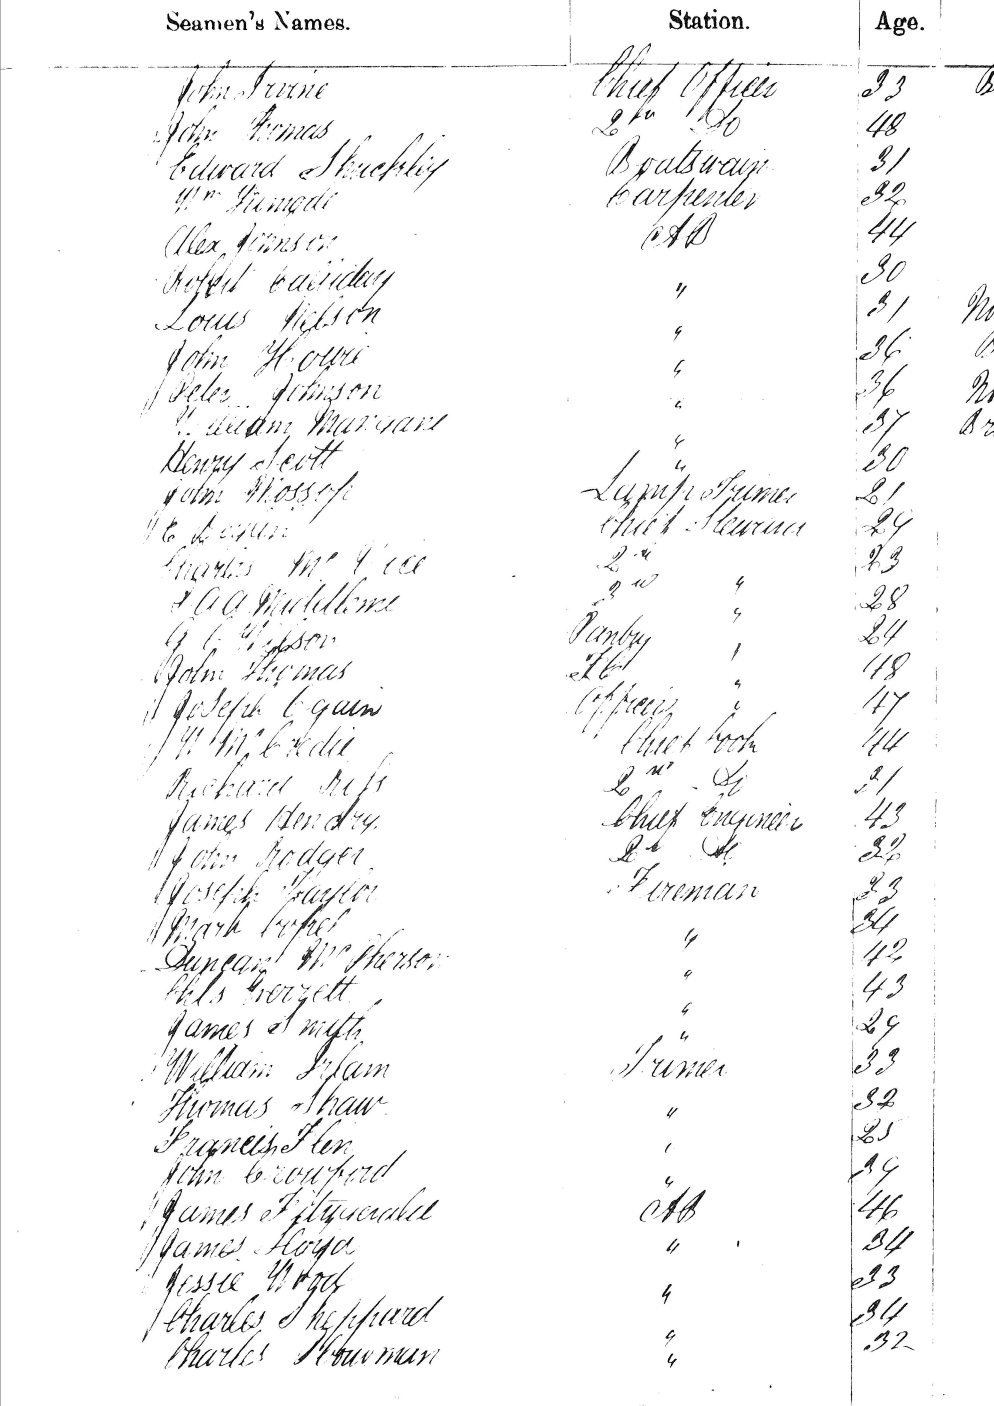 Seamen's Names. Station. Age.
John Irvine Chief Officer 33 B
John Thomas 2nd Do 48
Edward Shickley Boatswain 31
Wm Carpenter 32
Alex Johnson AB 44
Robert Cassiday " 30
Louis Nelson " 31 No
John Howie " 36 B
Peter Johnson " 36 No
William " 37 Br
Henry Scott " 30
John Mossop Lamp Trimer 21
Chief 29
Charles Mc Vice 2nd " 23
3rd " 28
Wilson Pantry " 24
John Thomas " 48
Joseph Cgain Officers " 47
W McCredie Chief Cook 44
Richard 2nd Do 21
James Hendry Chief Engineer 43
John Rodger 2nd Do 32
Joseph Taylor Fireman 33
Mark " 34
Duncan McPherson " 42
Chls " 43
James Smyth " 29
William Irlam Trimer 33
Thomas Shaw " 32
Francis Flen " 25
John Crowford " 39
James Fitzgerald AB 46
James Floyd " 34
Jessie Wood " 33
Charles Sheppard " 34
Charles Bowman " 32